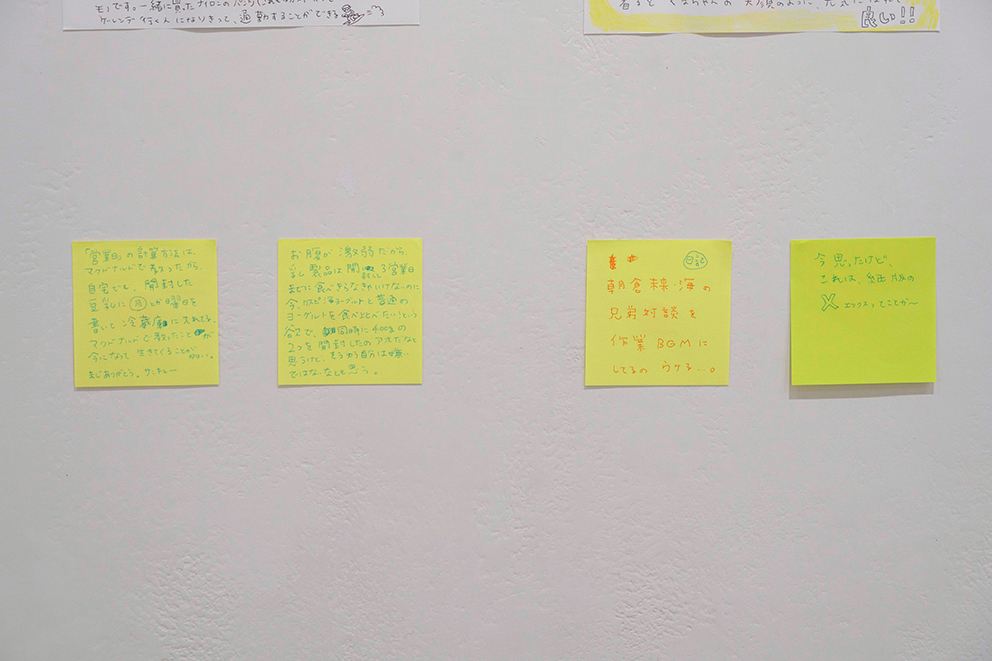 モノです。一緒に買ったナイロンの
ゲレンデ行くんになりきって、通勤することができる
着ると くまちゃんの 天使のように、
良い!!
「営業日」の計算方法は、
マクドナルドで教ったから、
自宅でも、開封した
豆乳に(月)とか曜日を
書いて冷蔵庫に入れてる。
マクドナルドで教ったことが
今になって生きてくることが
まじありがとう。サンキュー
お腹が激弱だから、
乳製品は開封して3営業日
までに食べきらなきゃいけないのに
今、カスピ海ヨーグルトと普通の
ヨーグルトを食べ比べたい!という
欲で、同時に400gの
2つを開封したのアホだなと
思うけど、そういう自分は嫌い
ではないなとも思う。
日記
朝倉未来・海の
兄弟対談を
作業BGMに
してるの ウケる…。
今思ったけど、
これは、紙版の
X エックスってことか〜